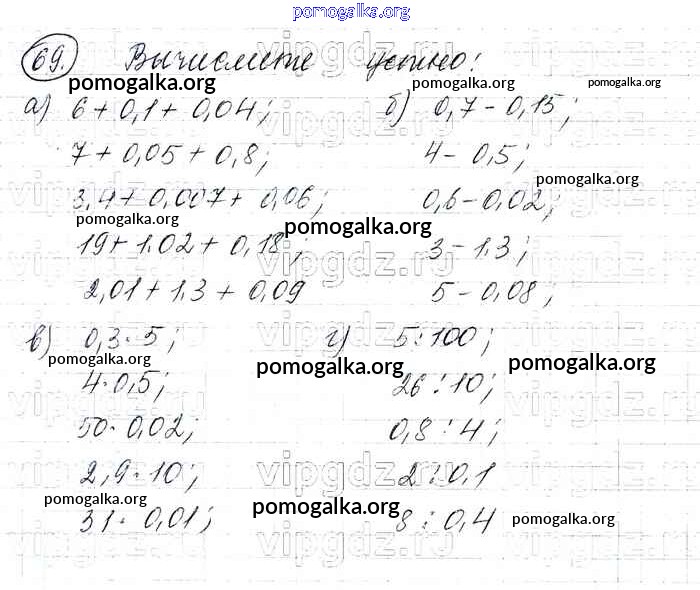 pomogalka.org
69. Вычислите устно:
pomogalka.org pomogalka.org pomogalka.org
а) 6 + 0,1 + 0,04; б) 0,7 - 0,15;
7 + 0,05 + 0,8; 4 - 0,5;
pomogalka.org
3,4 + 0,007 + 0,06; 0,6 - 0,02;
pomogalka.org pomogalka.org
19 + 1.02 + 0,18; 3 - 1.3;
2,01 + 1,3 + 0,09 5 - 0,08;
в) 0,3 · 5; г) 5 : 100;
pomogalka.org pomogalka.org pomogalka.org
4 · 0,5; 26 : 10;
50 · 0,02; 0,8 : 4;
2,9 · 10; 2 : 0,1
pomogalka.org pomogalka.org pomogalka.org
31 · 0,01; 8 : 0,4
vipgdz.ru